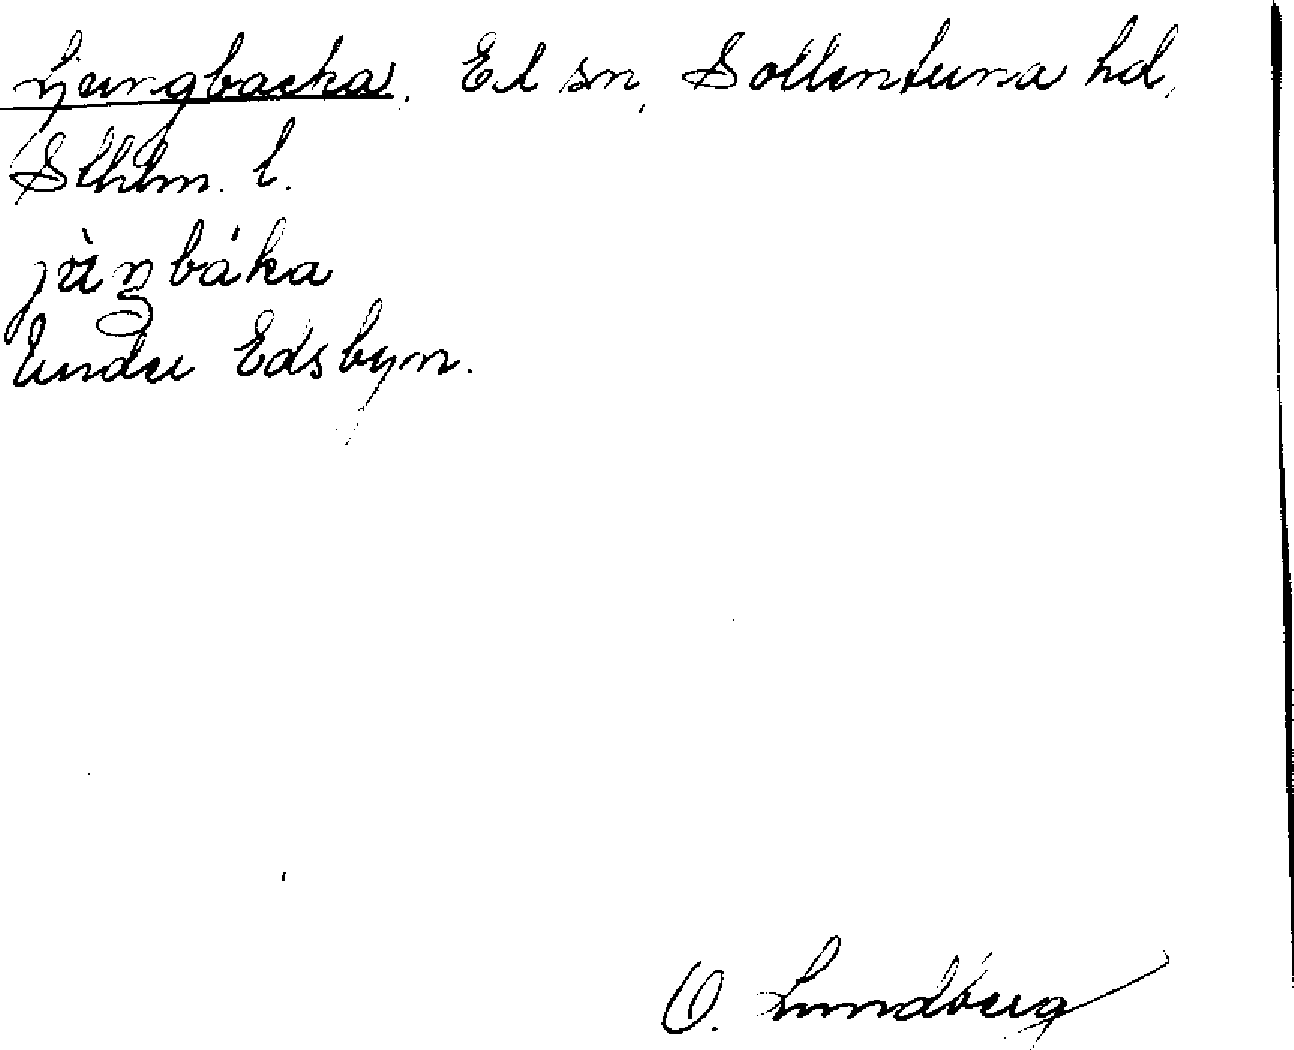 Ljungbacka. Ed sn, Sollentuna hd,
Sthlm. l.
jùŋbáka
Under Edsbyn.
O. Lundberg